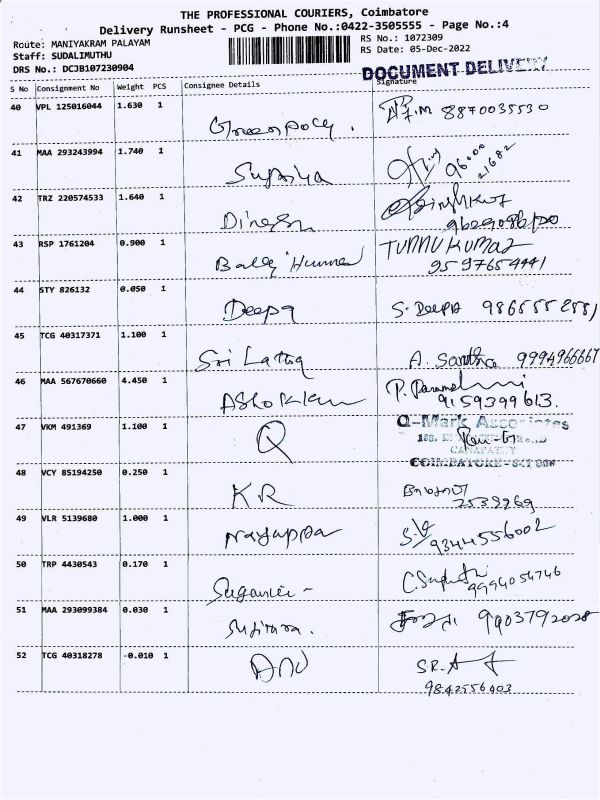 THE PROFESSIONAL COURIERS, Coimbatore
Delivery Runsheet - PCG - Phone No.:0422-3505555 - Page No.:4
Route: MANIYAKRAM PALAYAM RS No.: 1072309
Staff: SUDALIMUTHU RS Date: 05-Dec-2022
DRS No.: DCJB107230904 DOCUMENT DELIVERY
S No Consignment No Weight PCS Consignee Details Signature
40 VPL 125016044 1.630 1
8870035530
41 MAA 293243994 1.740 1
Supriya
42 TRZ 220574533 1.640 1
Dinesh
43 RSP 1761204 0.900 1 TUNNU KUMAR
9597654441
44 STY 826132 0.050 1
Deepa S. DEEPA
45 TCG 40317371 1.100 1
Sri Latha A. 9994966667
46 MAA 567670660 4.450 1
P.
9159399613.
47 VKM 491369 1.100 1 Q-Mark Associates
Q
COIMBATORE
48 VCY 85194250 0.250 1
KR
2539269
49 VLR 5139680 1.000 1
9344556002
50 TRP 4430543 0.170 1
9994054746
51 MAA 293099384 0.030 1
52 TCG 40318278 -0.010 1
SR.
9842556403